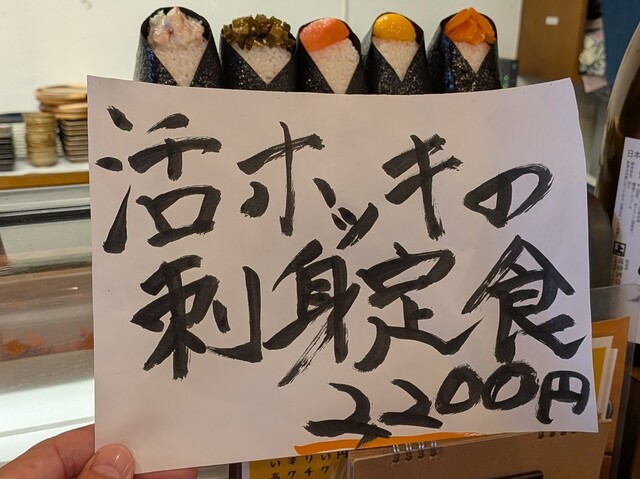 活ホッキの
刺身定食
2200円